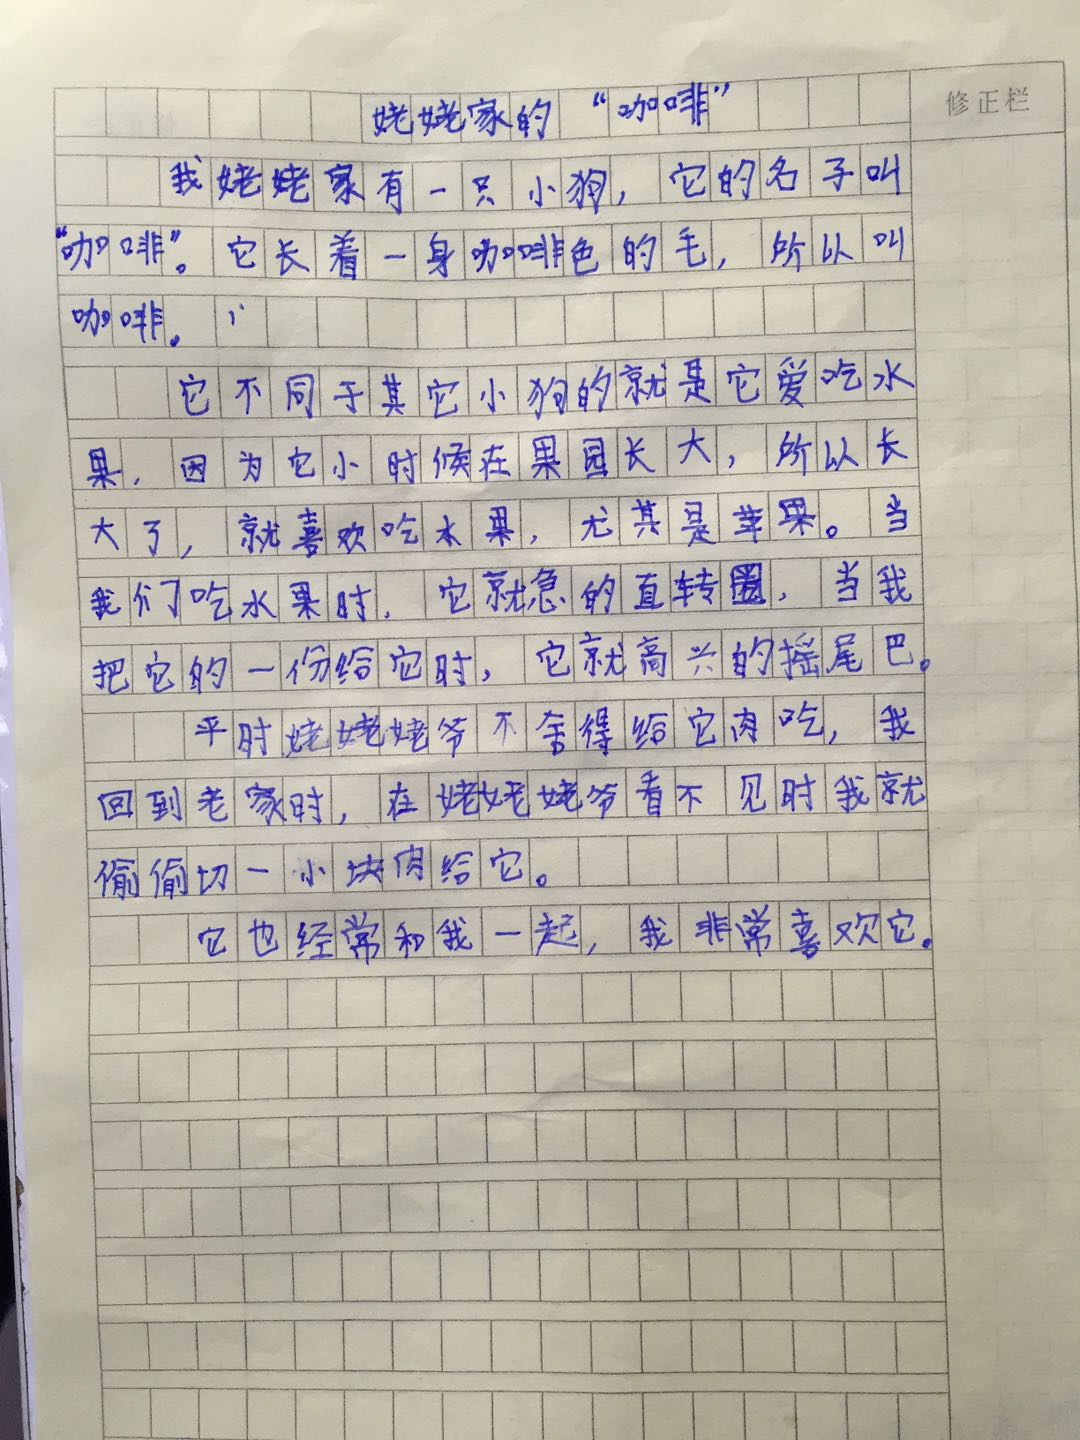 姥姥家的“咖啡”
修正栏
我姥姥家有一只小狗，它的名子叫
“咖啡”。它长着一身咖啡色的毛，所以叫
咖啡。
它不同于其它小狗的就是它爱吃水
果，因为它小时候在果园长大，所以长
大了，就喜欢吃水果，尤其是苹果。当
我们吃水果时，它就急的直转圈，当我
把它的一份给它时，它就高兴的摇尾巴。
平时姥姥姥爷不舍得给它肉吃，我
回到老家时，在姥姥姥爷看不见时我就
偷偷切一小块肉给它。
它也经常和我一起，我非常喜欢它。